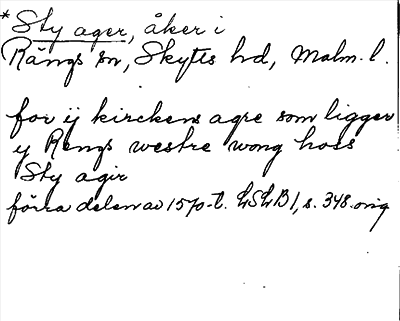 * Sty ager, åker i
Rängs sn, Skytts hd, Malm. l.
for ij kirckens agre som ligger
y Rengs westre wong hoss
Sty agir
förra delen av 1570-t. LSLB 1, s. 348. orig